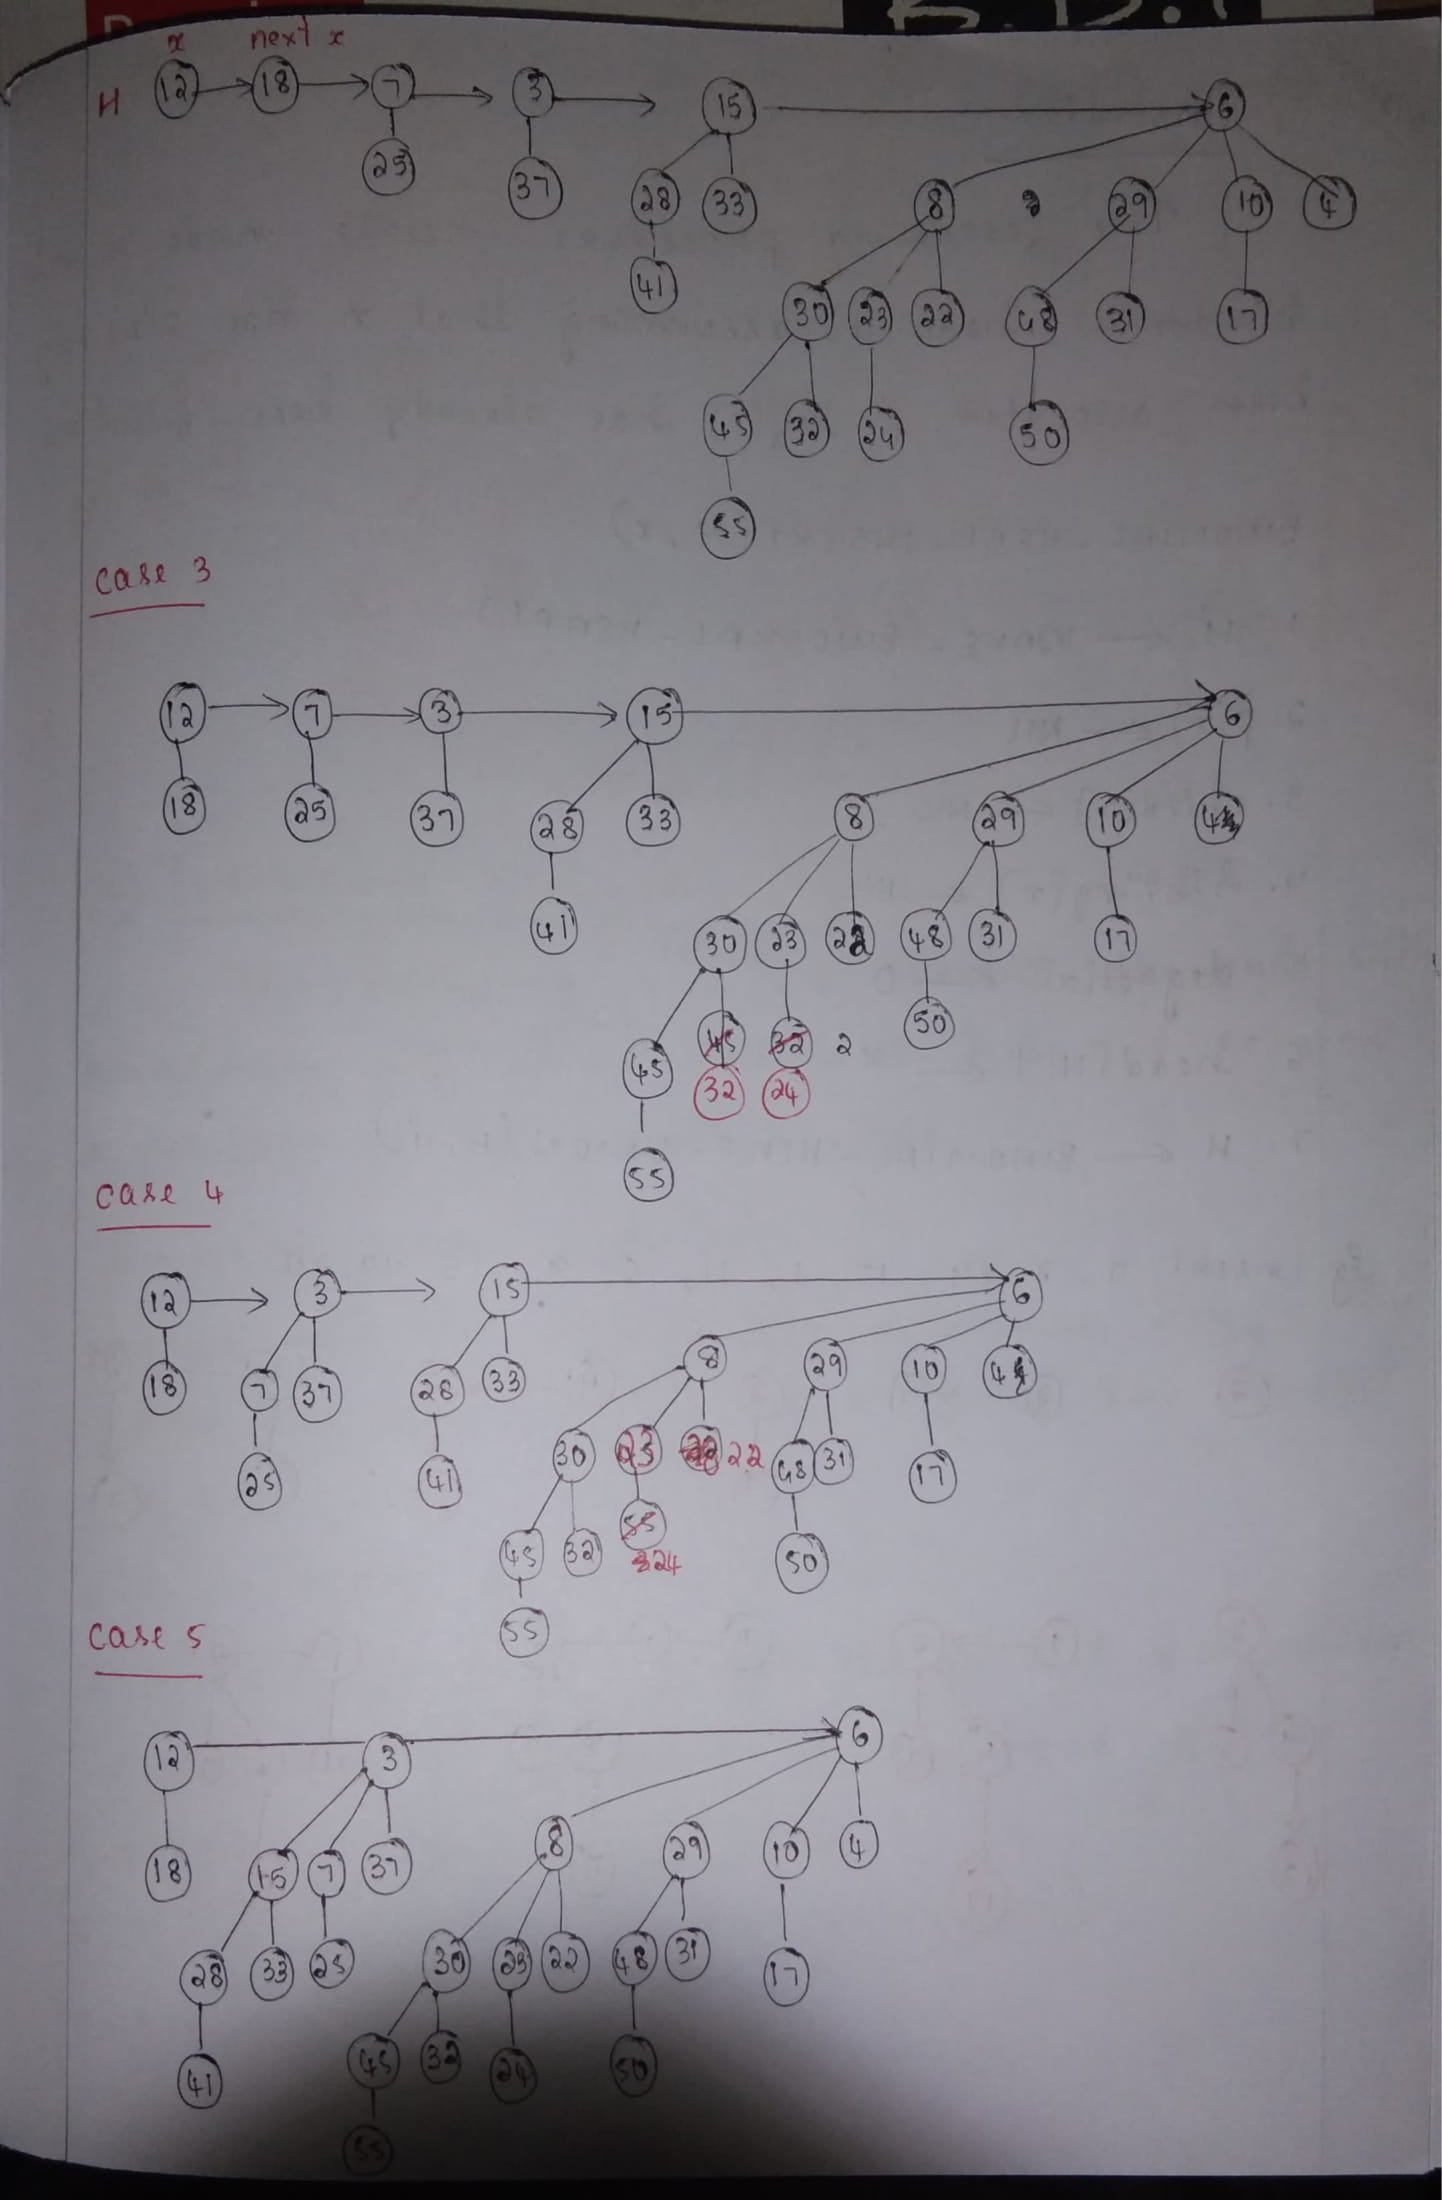 x next x
H 12 18 7 3 15 6
25 37 28 33 8 29 10 4
41 30 23 22 48 31 17
45 32 24 50
55
case 3
12 7 3 15 6
18 25 37 28 33 8 29 10 4
41 30 23 22 48 31 17
45 45 32 2 50
32 24
55
case 4
12 3 15 6
18 7 37 28 33 8 29 10 4
25 41 30 23 22 48 31 17
45 32 55 50
24
55
case 5
12 3 6
18 15 7 37 8 29 10 4
28 33 25 30 23 22 48 31 17
41 45 32 24 50
55